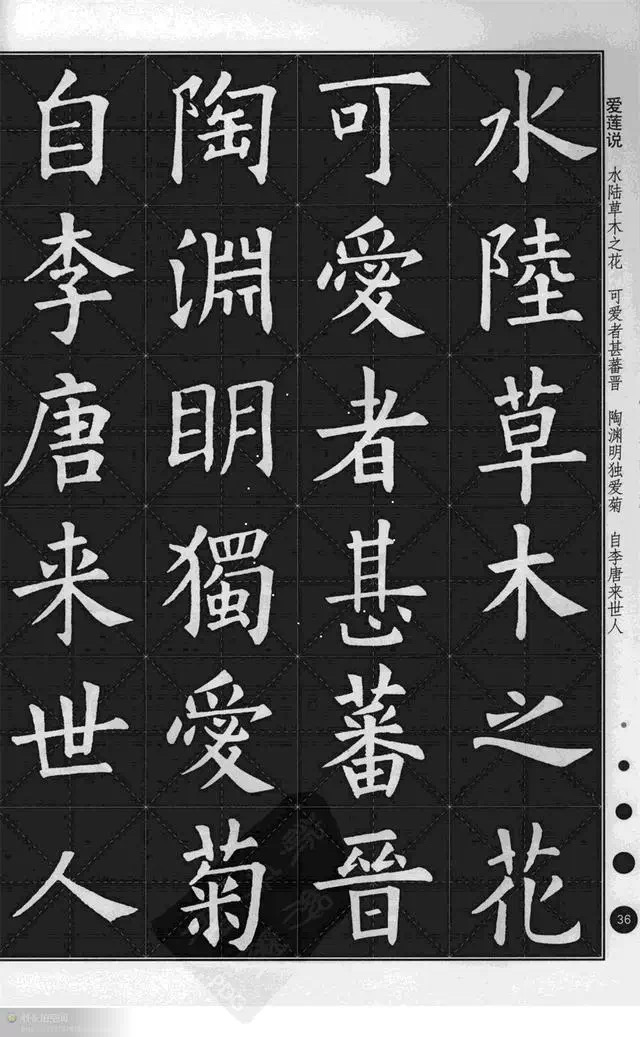 爱莲说 水陆草木之花 可爱者甚蕃晋 陶渊明独爱菊 自李唐来世人
水陸草木之花
可愛者甚蕃晉
陶淵明獨愛菊
自李唐来世人
36